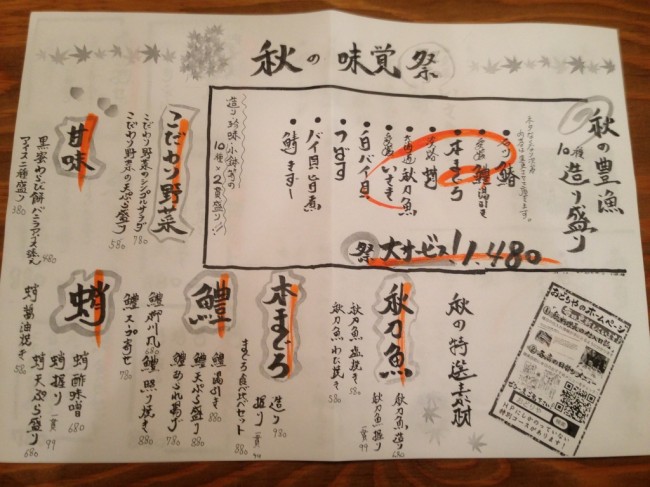 秋の味覚祭
秋の豊漁
10種造り盛り
本まぐろ
秋刀魚
つぶす
白バイ貝
バイ貝旨煮
鯖きずし
祭 大サービス!1,480
秋の特選素材
秋刀魚
秋刀魚造り 680
秋刀魚握り 一貫99
秋刀魚塩焼き 580
秋刀魚わた焼き 580
本まぐろ
造り 980
握り 一貫99
まぐろ食べ比べセット 880
鱧
鱧湯引き 880
鱧天ぷら盛り 880
鱧あられ揚げ 780
鱧照り焼き 880
鱧柳川風 680
蛸
蛸酢味噌 680
蛸握り 一貫99
蛸天ぷら盛り 680
蛸醤油焼き 580
こだわり野菜
こだわり野菜のシンプルサラダ 780
こだわり野菜の天ぷら盛り 580
甘味
黒蜜わらび餅バニラアイス添え 480
アイス二種盛り 380
おどりやのホームページ
HPにしかのっていない
特別コースがあります!